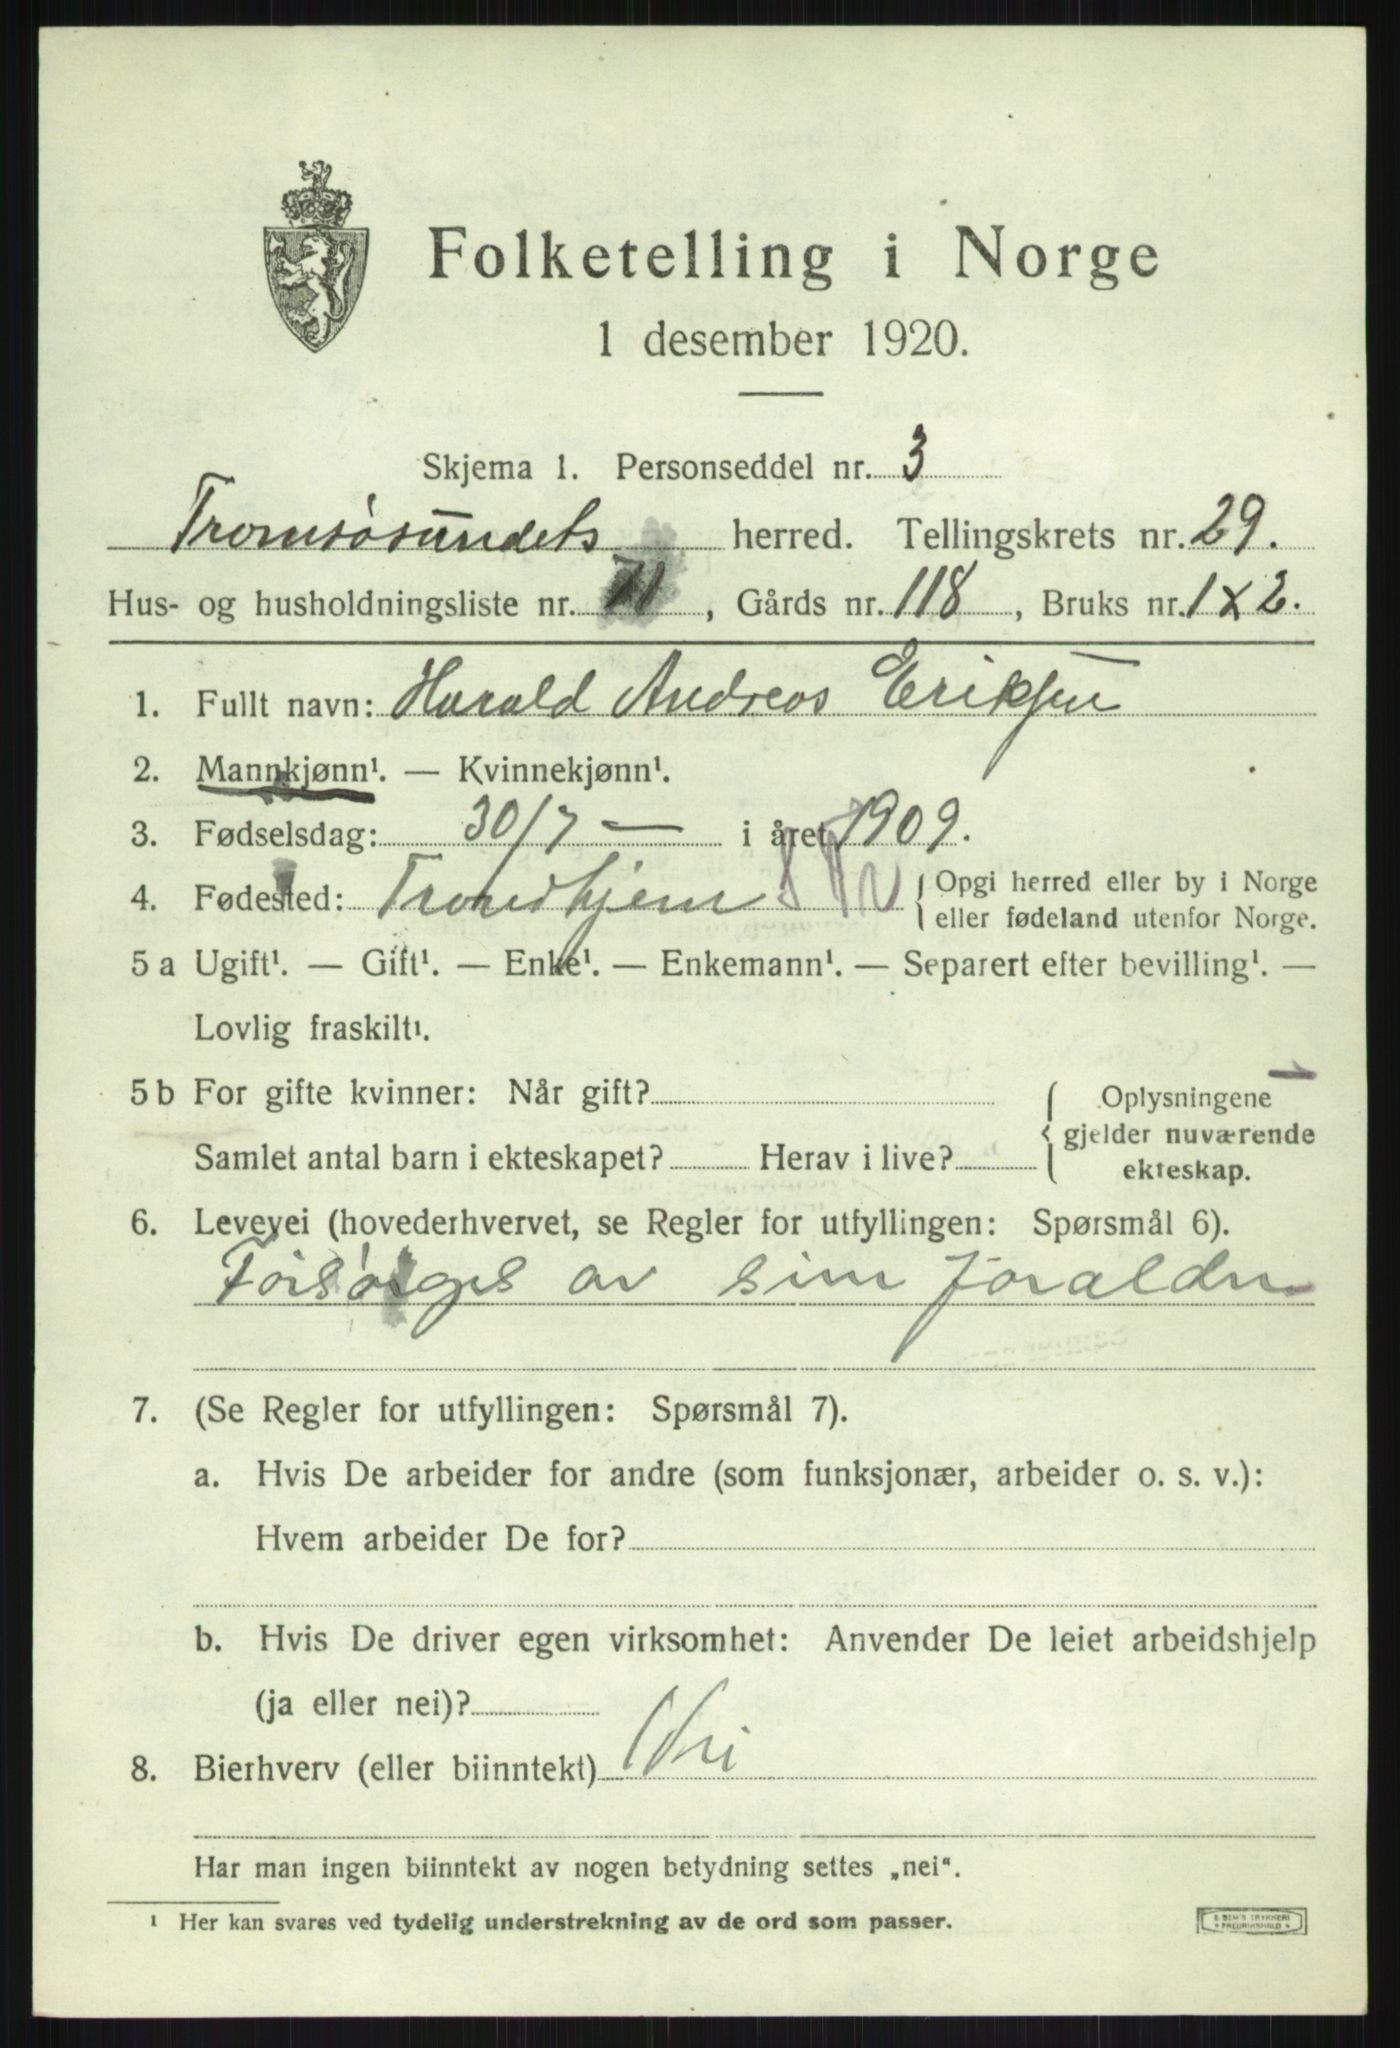 Folketelling i Norge
1 desember 1920.
Skjema 1. Personseddel nr. 3
Tromsøsundets herred. Tellingskrets nr. 29.
Hus- og husholdningsliste nr. 71, Gårds nr. 118, Bruks nr. 1 x 2.
1. Fullt navn: Harald Andreas Eriksen
2. Mannkjønn¹. — Kvinnekjønn¹.
3. Fødselsdag: 30/7 — i året 1909.
4. Fødested: Trondhjem { Opgi herred eller by i Norge
eller fødeland utenfor Norge.
5 a Ugift¹. — Gift¹. — Enke¹. — Enkemann¹. — Separert efter bevilling¹. —
Lovlig fraskilt¹.
5 b For gifte kvinner: Når gift? { Oplysningene
gjelder nuværende
Samlet antal barn i ekteskapet? Herav i live? ekteskap.
6. Levevei (hovederhvervet, se Regler for utfyllingen: Spørsmål 6).
Forsørges av sine foraldre
7. (Se Regler for utfyllingen: Spørsmål 7).
a. Hvis De arbeider for andre (som funksjonær, arbeider o. s. v.):
Hvem arbeider De for?
b. Hvis De driver egen virksomhet: Anvender De leiet arbeidshjelp
(ja eller nei)?
8. Bierhverv (eller biinntekt) Nei
Har man ingen biinntekt av nogen betydning settes „nei“.
¹ Her kan svares ved tydelig understrekning av de ord som passer.